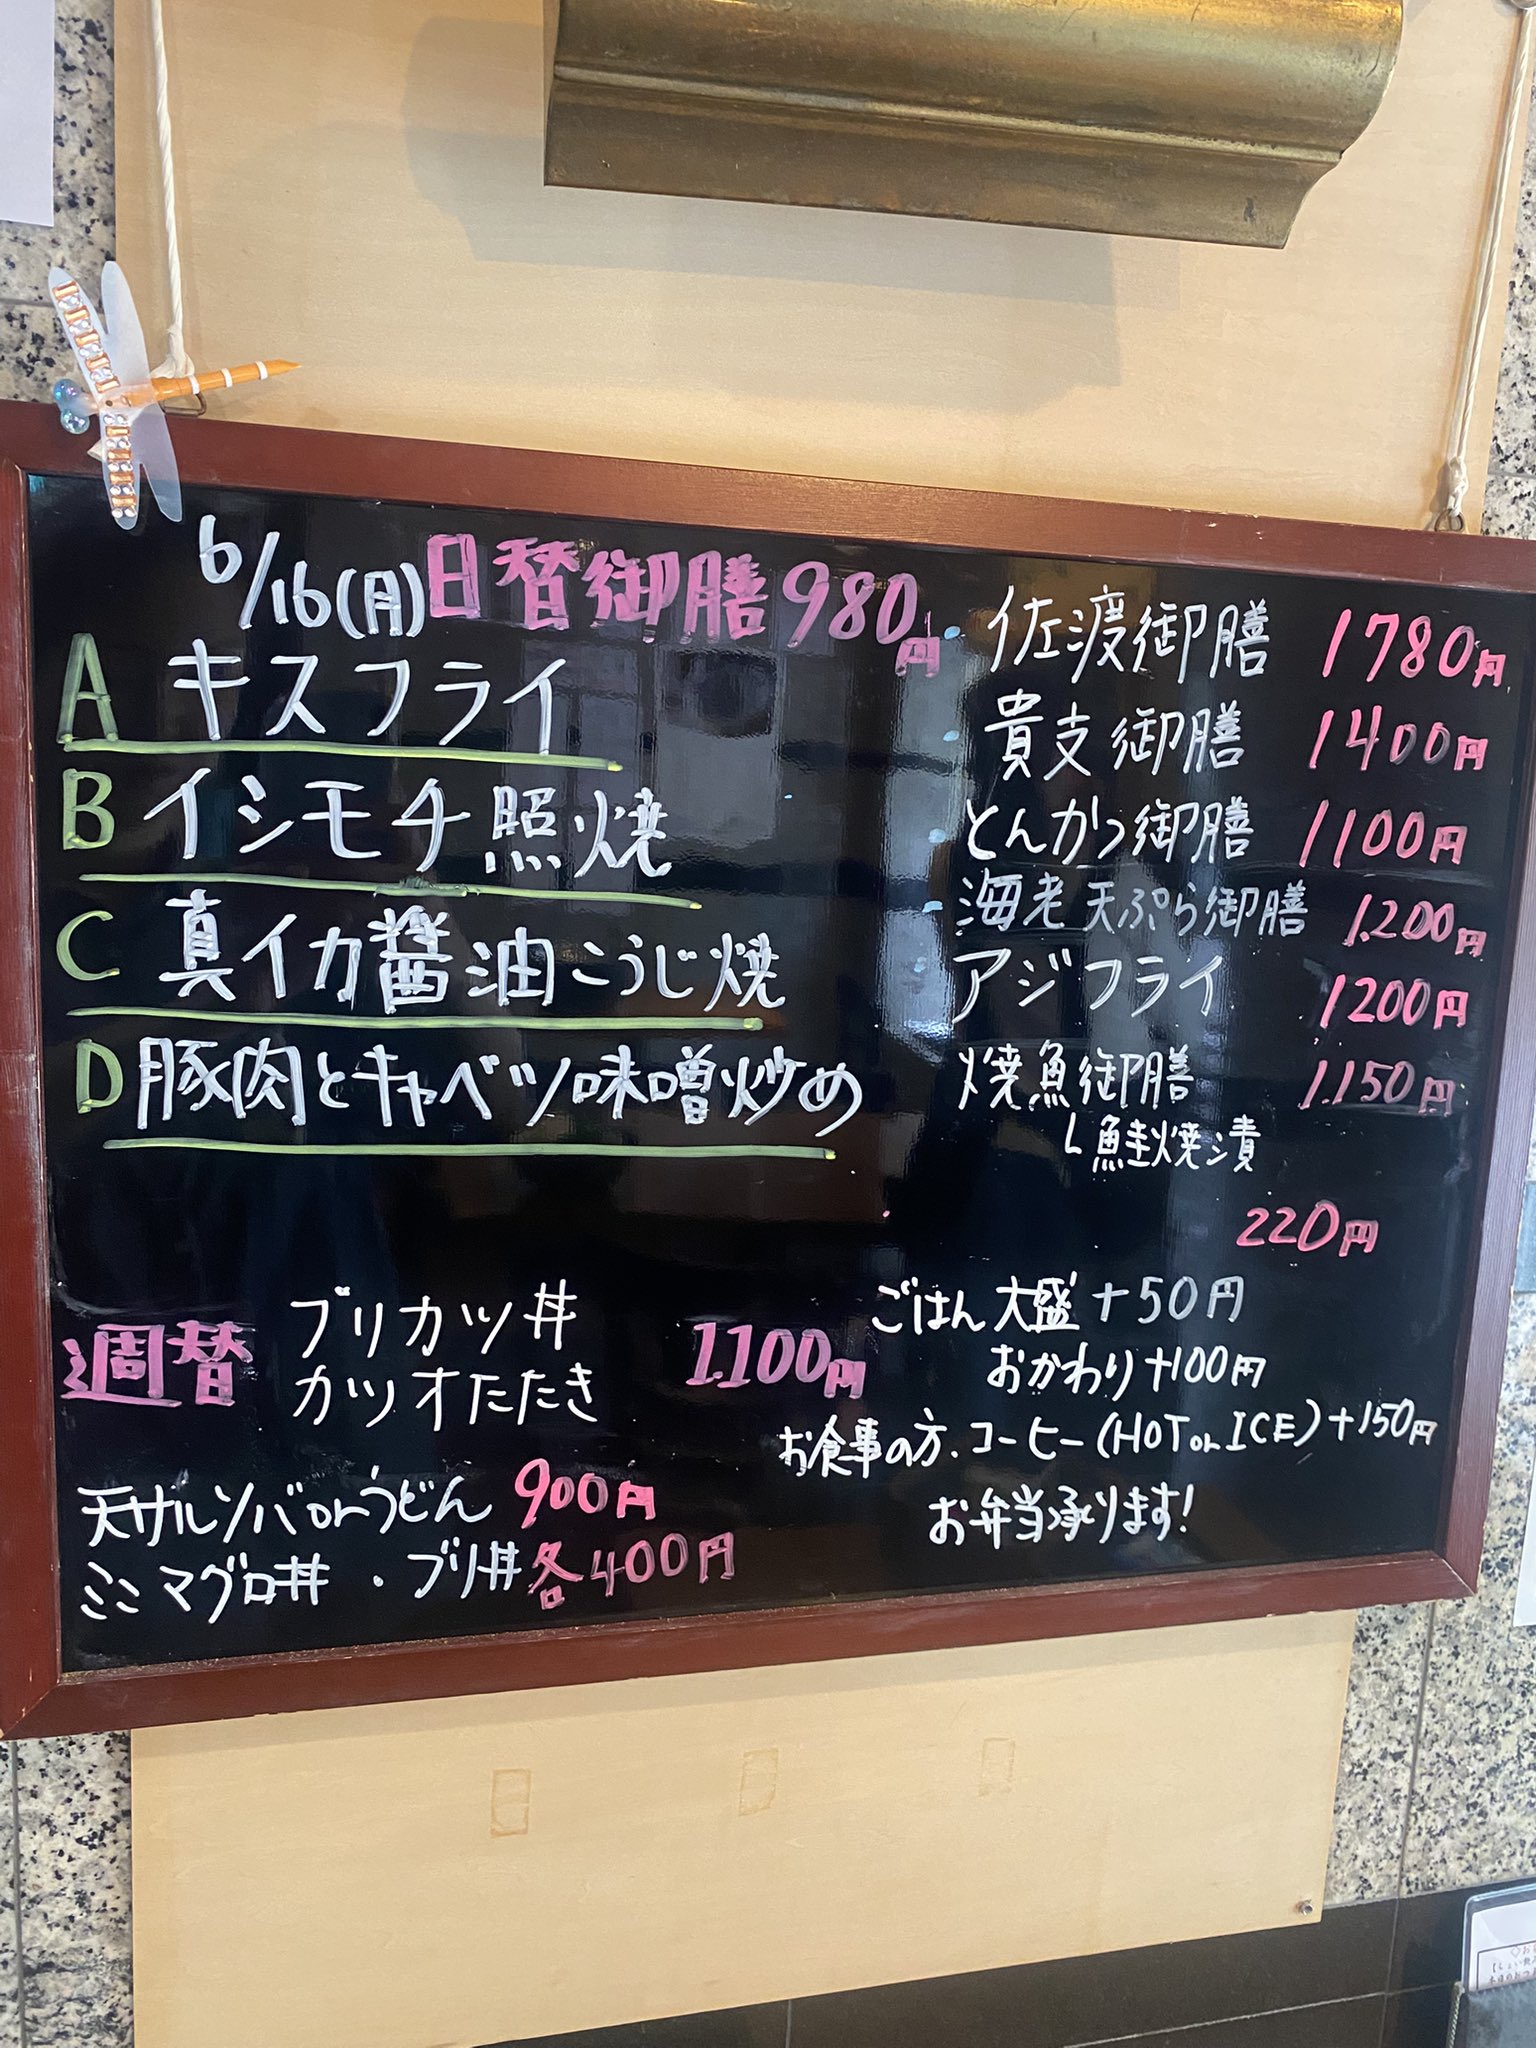 6/16(月)日替御膳980円
A キスフライ
B イシモチ照焼
C 真イカ醤油こうじ焼
D 豚肉とキャベツ味噌炒め
週替 ブリカツ丼
カツオたたき 1.100円
天ザルソバorうどん 900円
ミニマグロ丼・ブリ丼各400円
・佐渡御膳 1780円
・貴支御膳 1400円
・とんかつ御膳 1100円
・海老天ぷら御膳 1.200円
・アジフライ 1200円
焼魚御膳 1.150円
└鮭焼漬
220円
ごはん大盛+50円
おかわり+100円
お食事の方、コーヒー(HOT or ICE)+150円
お弁当承ります!